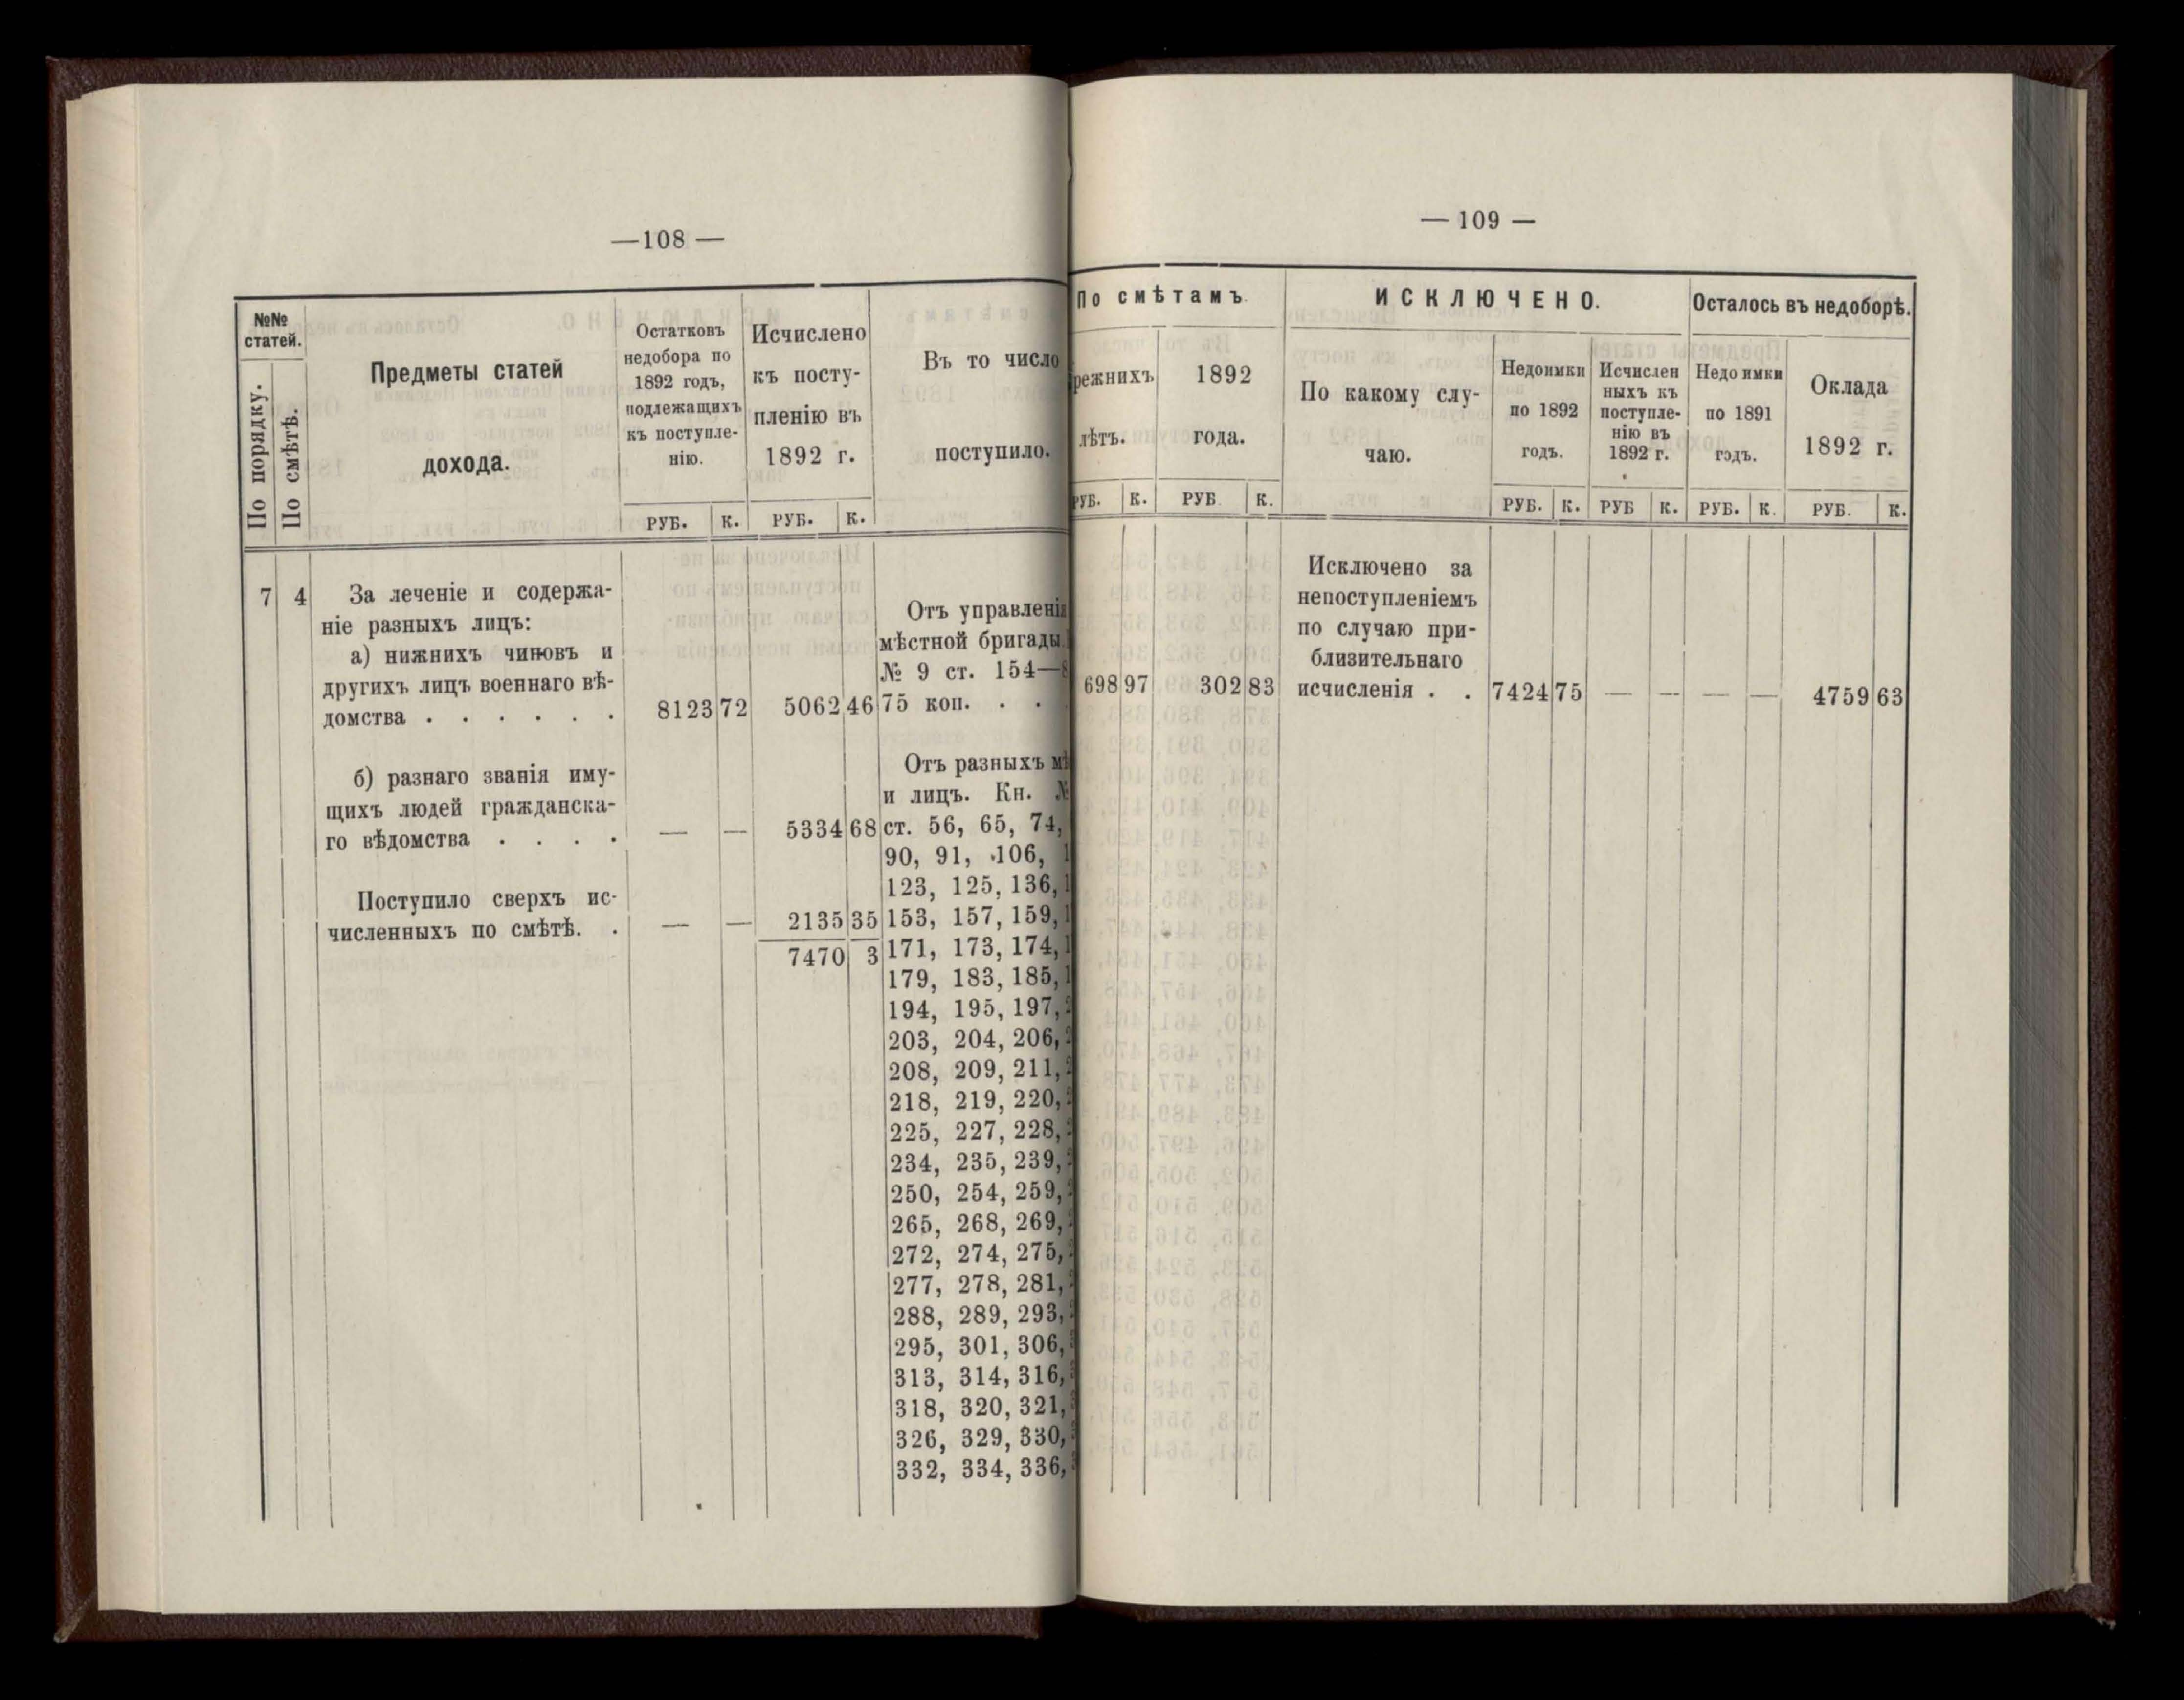 —108 —
№№
статей.
По порядку.
По смѣтѣ.
Предметы статей
дохода.
Остатковъ
недобора по
1892 годъ,
подлежащихъ
къ поступле-
нію.
Исчислено
къ посту-
пленію въ
1892 г.
Въ то число
поступило.
РУБ. К. РУБ. К.
7 4 За леченіе и содержа-
ніе разныхъ лицъ:
а) нижнихъ чиновъ и
другихъ лицъ военнаго вѣ-
домства . . . . . . 8123 72 5062 46
б) разнаго званія иму-
щихъ людей гражданска-
го вѣдомства . . . . — — 5334 68
Поступило сверхъ ис-
численныхъ по смѣтѣ. . — — 2135 35
7470 3
Отъ управленія
мѣстной бригады
№ 9 ст. 154—
75 коп. . .
Отъ разныхъ
и лицъ. Кн.
ст. 56, 65, 74,
90, 91, 106,
123, 125, 136,
153, 157, 159,
171, 173, 174,
179, 183, 185,
194, 195, 197,
203, 204, 206,
208, 209, 211,
218, 219, 220,
225, 227, 228,
234, 235, 239,
250, 254, 259,
265, 268, 269,
272, 274, 275,
277, 278, 281,
288, 289, 293,
295, 301, 306,
313, 314, 316,
318, 320, 321,
326, 329, 330,
332, 334, 336,
— 109 —
По смѣтамъ
режнихъ
лѣтъ.
1892
года.
ИСКЛЮЧЕНО.
По какому слу-
чаю.
Недоимки
по 1892
годъ.
Исчислен
ныхъ къ
поступле-
нію въ
1892 г.
Осталось въ недоборѣ.
Недоимки
по 1891
годъ.
Оклада
1892 г.
РУБ. К. РУБ. К. РУБ. К. РУБ К. РУБ. К. РУБ. К.
698 97 302 83
Исключено за
непоступленіемъ
по случаю при-
близительнаго
исчисленія . . 7424 75 — — — — 4759 63